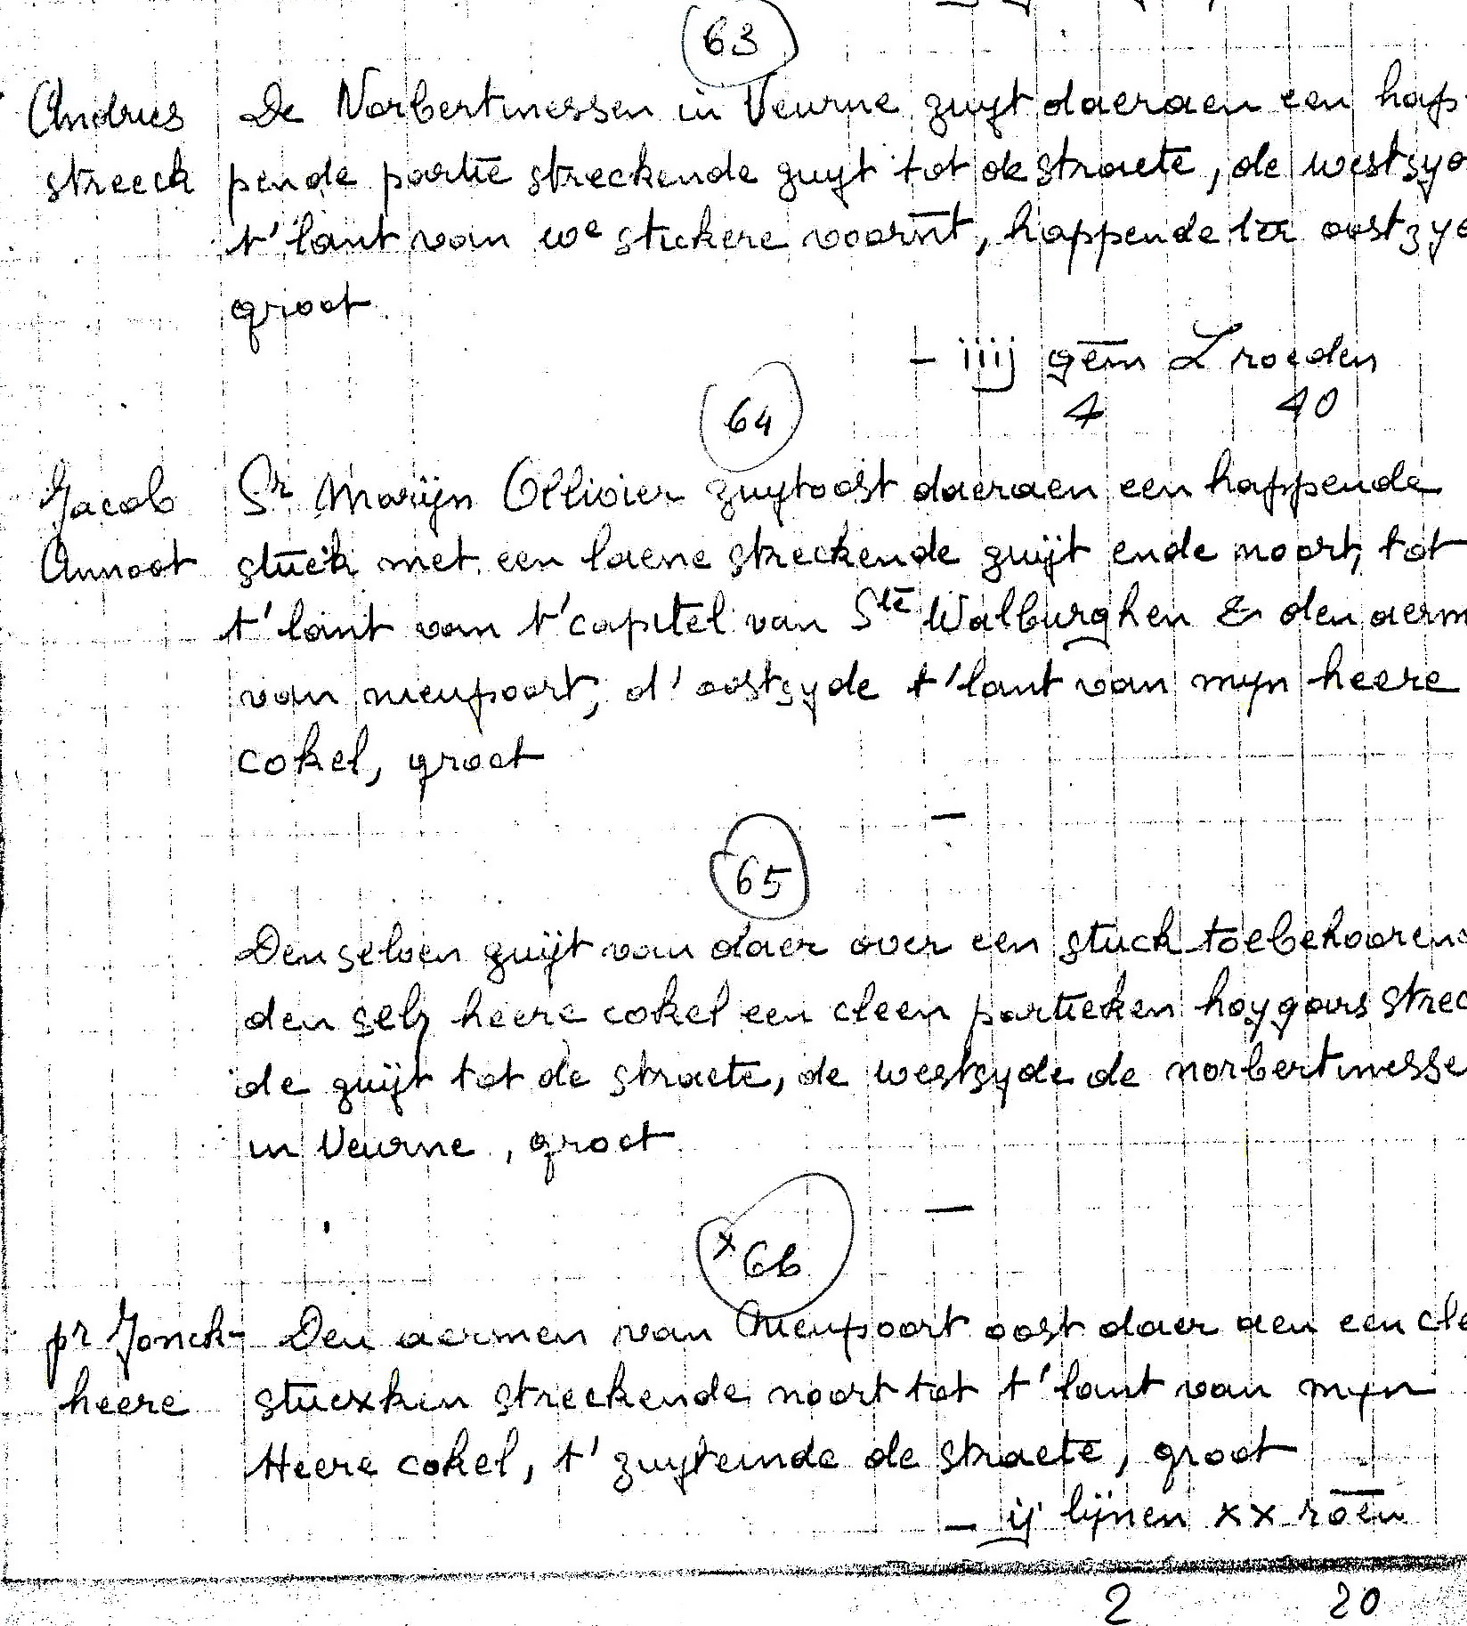 63
Andries De Norbertinessen in Veurne zuyt daeraen een hap-
streeck pende partie streckende zuyt tot de straete, de westzyd
t'lant van we stickere voornt, happende ter oostzyd
groot
- iiij gem L roeden
4 40
64
Jacob Sr Marijn Ollivier zuytoost daeraen een happende
Annoot stuck met een laene streckende zuijt ende noort, tot
t'lant van t'capitel van Ste Walburghen & den aerm
van nieupoort, d'oostzyde t'lant van myn heere
cokel, groot
—
65
Denselven zuijt van daer over een stuck toebehooren
den selv heere cokel een cleen partieken hoygars strec
de zuijt tot de straete, de westzyde de norbertinesse
in Veurne, groot
—
x 66
pr Jonck- Den aermen van Nieupoort oost daer aen een cle
heere stucxken streckende noort tot t'lant van myn
Heere cokel, t'zuyteinde de straete, groot
- ij lijnen xx roen
2 20